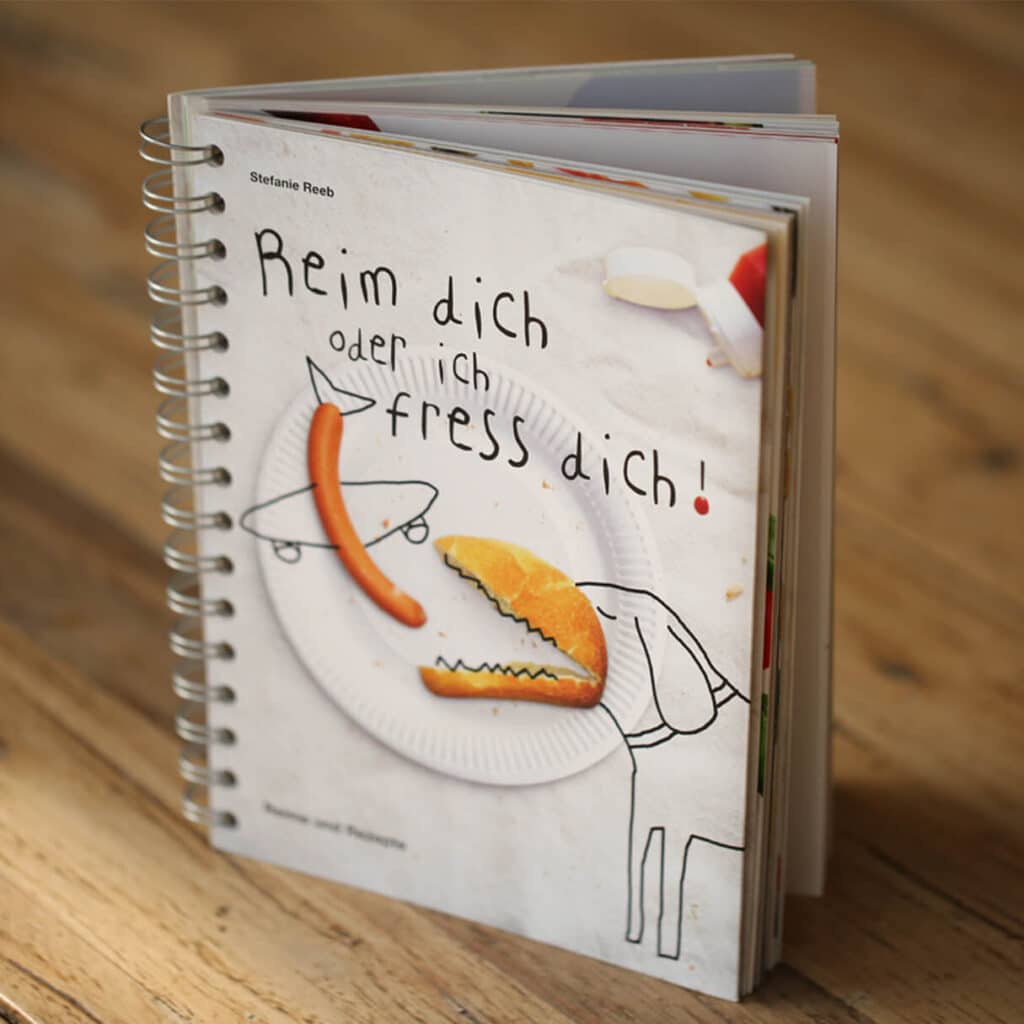 Stefanie Reeb
Reim dich
oder ich
fress dich!
Reime und Rezepte